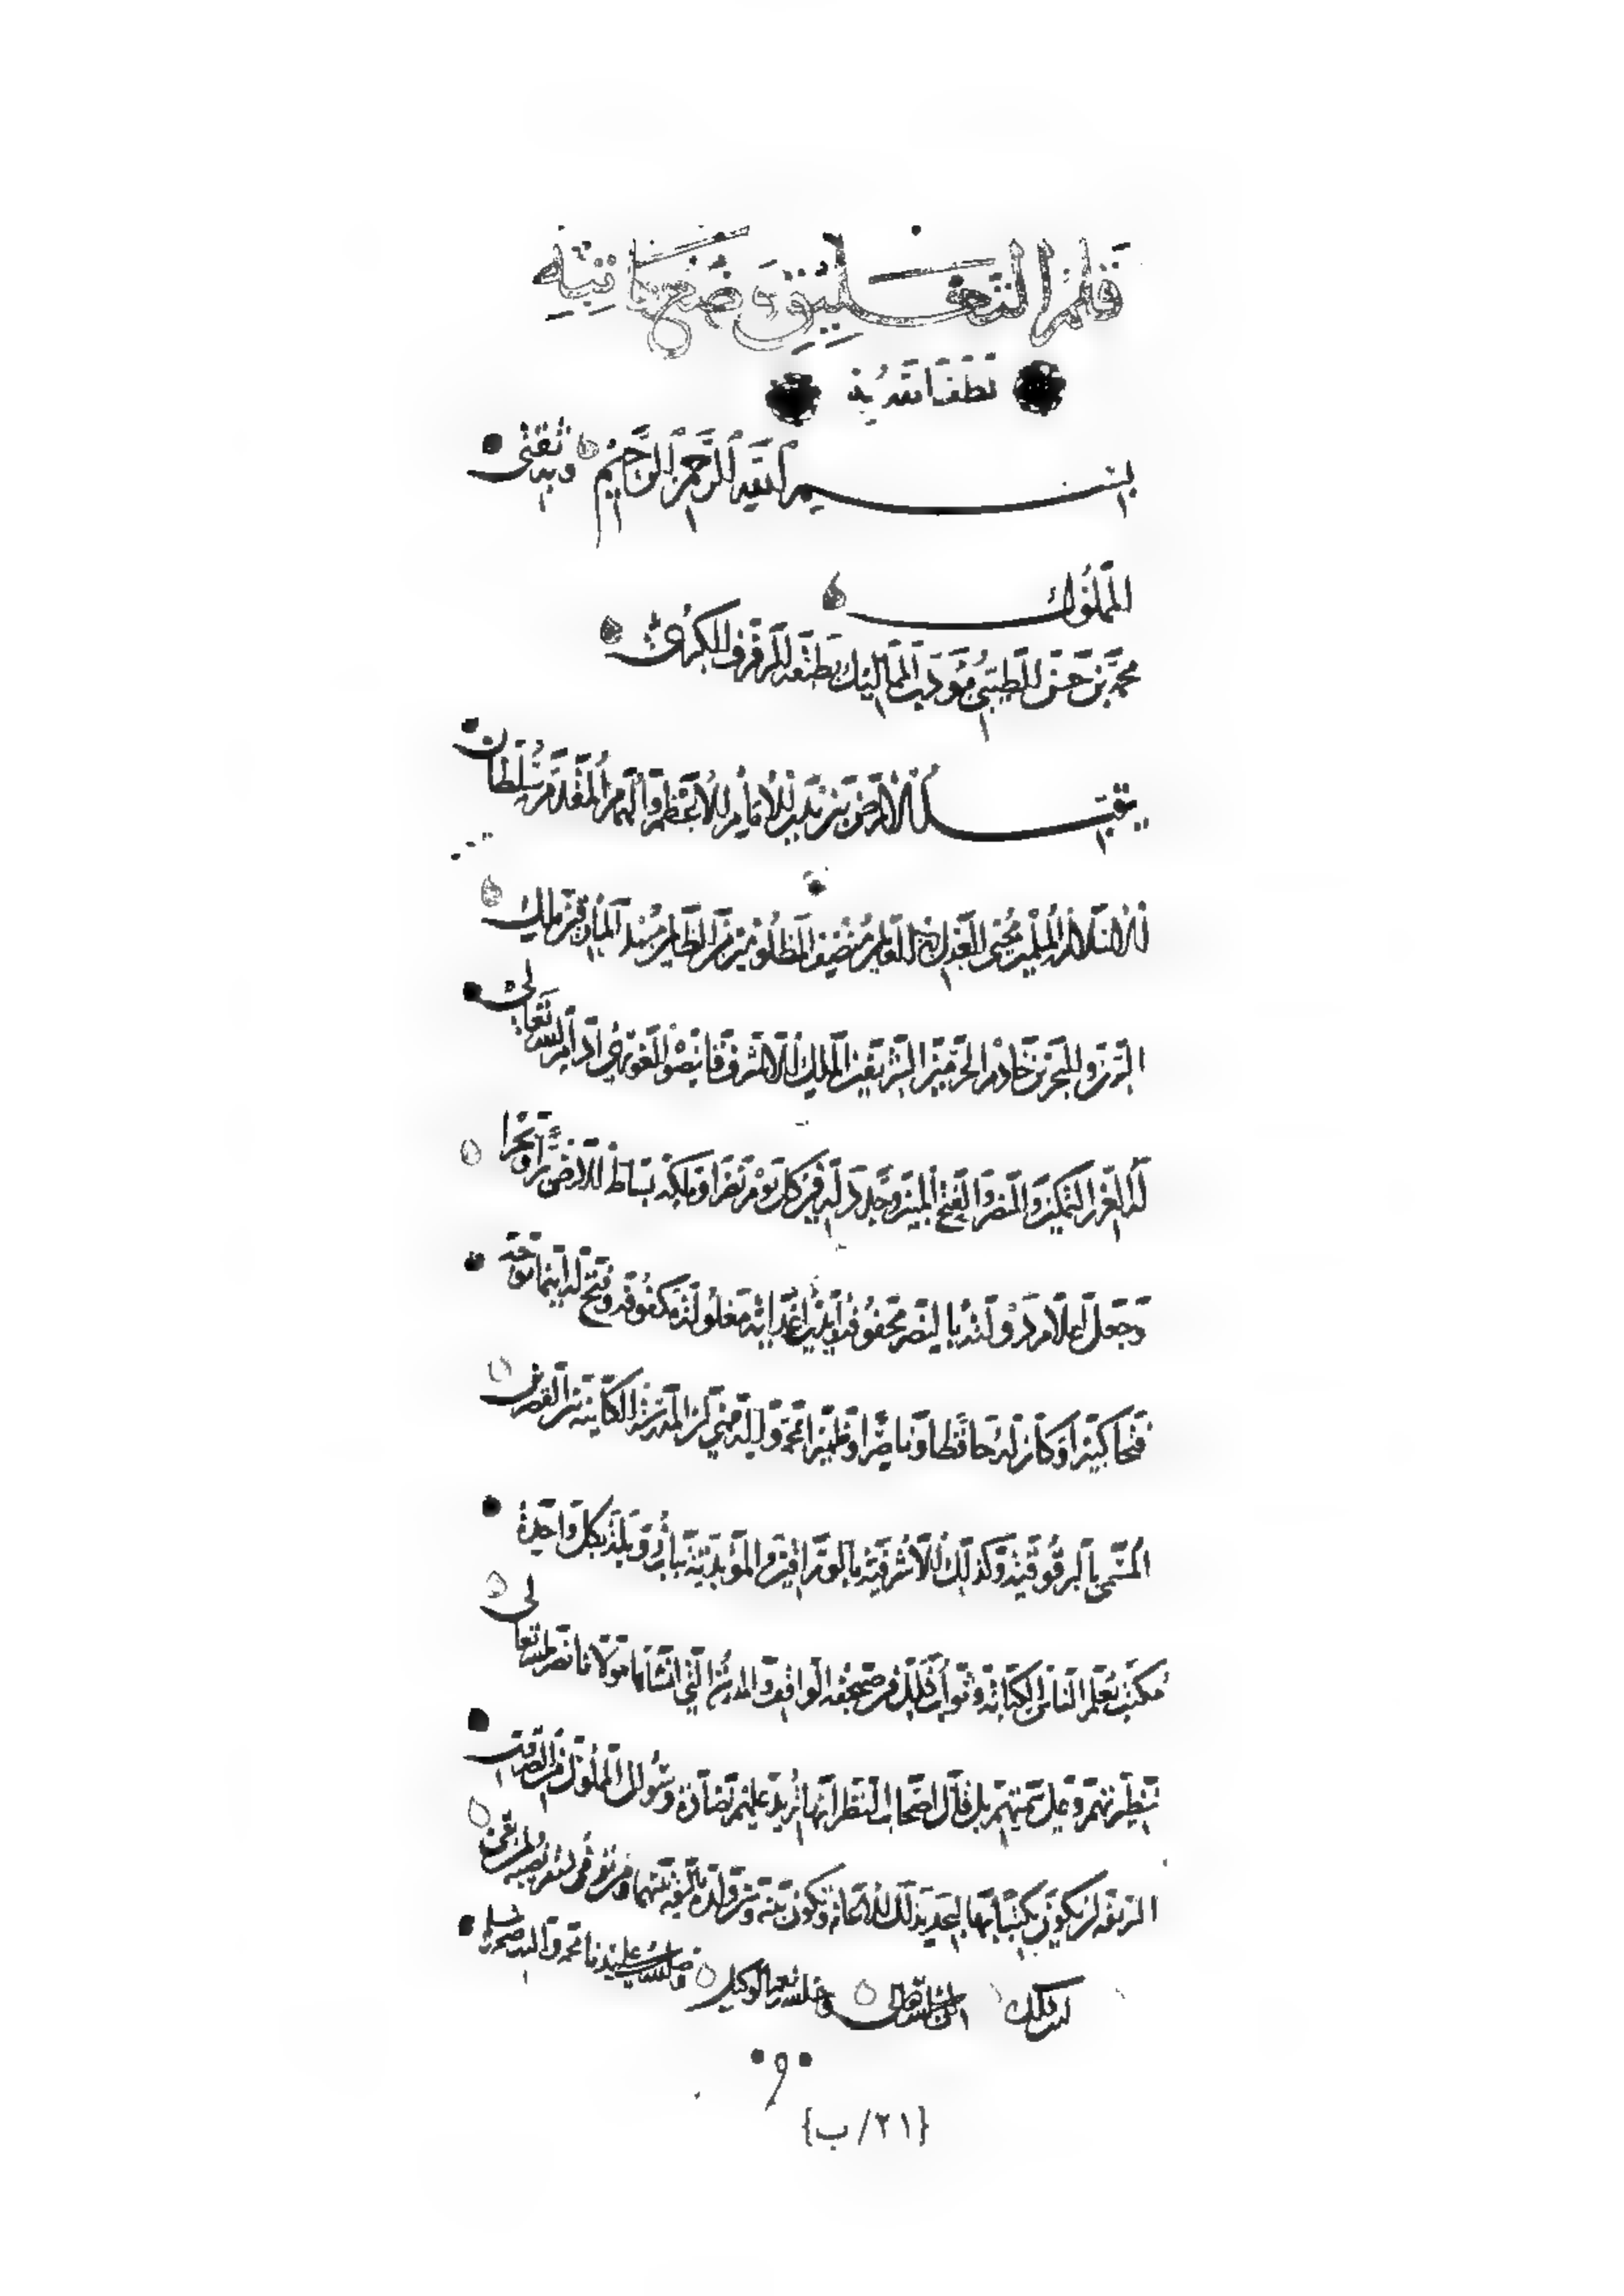 قلم التعليق وضع كاتبه
لطف الله به
بسم الله الرحمن الرحيم وبه ثقتى
المملوك
محمد بن حسن الطيبى مؤدب المماليك بطبقة الرفرف الكبرى
يقبل الارض بين يدى الامام الاعظم والهمام المقدم سلطان
الاسلام والمسلمين محيى العدل فى العالمين منصف المظلومين من الظالمين مالك
البرين والبحرين خادم الحرمين الشريفين الملك الاشرف قانصوه الغورى ادام الله تعالى
له العز والتمكين والنصر والفتح المبين وجدد له فى كل يوم نصرا وملكه بساط الارض برا وبحرا
وجعل اعلام دولته بالنصر محفوفة وايدى اعدائه مغلولة مكفوفة وفتح له اينما توجه
فتحا كبيرا وكان له حافظا وناصرا وظهيرا بمحمد واله ان المدرسة الكائنة بين القصرين
المسمى بالبرقوقية وكذلك الاشرفية بالوراقين والمؤيدية بباب زويلة بكل واحدة
مكتب يعلم الناس الكتابة وثواب ذلك فى صحيفة الواقف والمدرسة التى انشأها مولانا نصره الله تعالى
نظيرتهم وعلى سمتهم بل قال اصحاب النظر انها تزيد عليهم نضارة وسؤال المملوك من الصدقات
الشريفة ان يكون بها
ذلك ان شاء الله تعالى وحسبنا الله ونعم الوكيل وصلى الله على سيدنا محمد واله وصحبه وسلم
{٢١/ب}